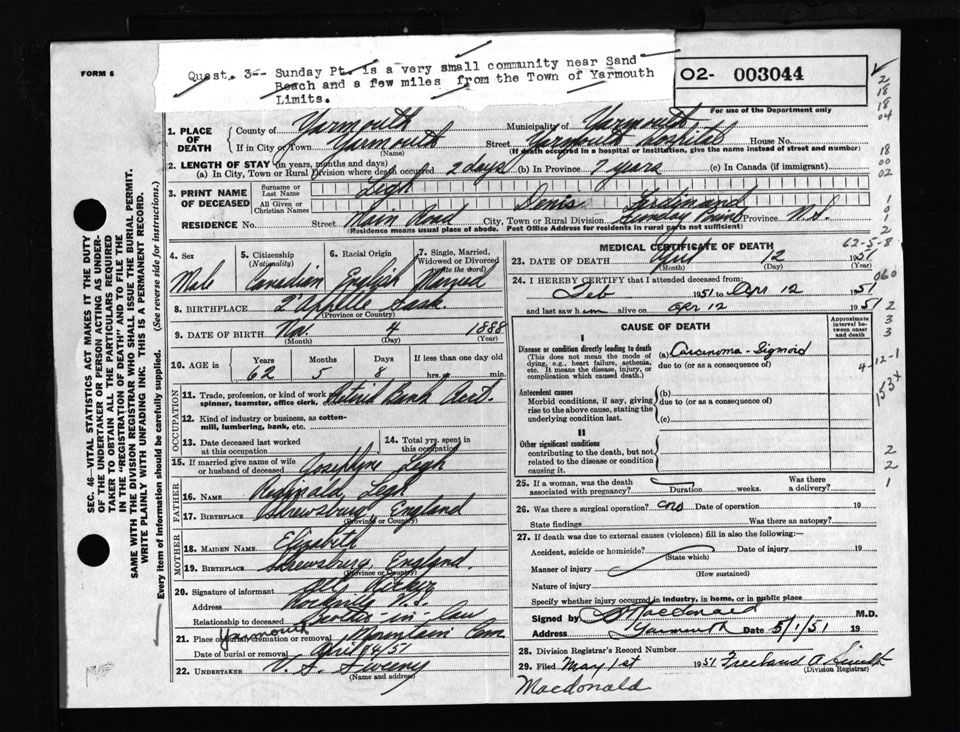 FORM 6
Quest. 3-- Sunday Pt. is a very small community near Sand
Beach and a few miles from the Town of Yarmouth
Limits.
02- 003044
For use of the Department only
1. PLACE OF DEATH
County of Yarmouth Municipality of Yarmouth
If in City or Town Yarmouth (Name) Street Yarmouth Hospital House No.
(If death occured in a hospital or institution, give the name instead of street and number)
2. LENGTH OF STAY (in years, months and days)
(a) In City, Town or Rural Division where death occured 2 days (b) In Province 7 years (c) In Canada (if immigrant)
3. PRINT NAME OF DECEASED
Surname or Last Name Leigh
All Given or Christian Names Denis Ferdinand
RESIDENCE No. Street Main Road City, Town or Rural Division Sunday Point Province N.S.
(Residence means usual place of abode. Post Office Address for residents in rural parts not sufficient)
4. Sex
Male
5. Citizenship (Nationality)
Canadian
6. Racial Origin
English
7. Single, Married, Widowed or Divorced (write the word)
Married
8. BIRTHPLACE Q'Apelle Sask
(Province or Country)
9. DATE OF BIRTH Nov. 4 1888
(Month) (Day) (Year)
10. AGE Years Months Days If less than one day old
62 5 8 hrs. or min.
OCCUPATION
11. Trade, profession, or kind of work as spinner, teamster, office clerk, etc. Retired Bank Acct.
12. Kind of industry or business, as cotton-mill, lumbering, bank, etc.
13. Date deceased last worked at this occupation
14. Total yrs. spent in this occupation
15. If married give name of wife or husband of deceased Josephine Leigh
FATHER
16. NAME Reginald Leigh
17. BIRTHPLACE Shrewsbury, England
(Province or Country)
MOTHER
18. MAIDEN NAME Elizabeth
19. BIRTHPLACE Shrewsbury, England.
(Province or Country)
20. Signature of informant
Address N.S.
Relationship to deceased Brother-in-law
21. Place of burial, cremation or removal Yarmouth Mountain Cem
Date of burial or removal April 14/51
22. UNDERTAKER V.S. Sweeny
(Name and address)
MEDICAL CERTIFICATE OF DEATH
23. DATE OF DEATH April 12 1951
(Month) (Day) (Year)
24. I HEREBY CERTIFY that I attended deceased from:
Feb 1951 to Apr 12 1951
and last saw him alive on Apr 12 1951
CAUSE OF DEATH
Approximate interval between onset and death
I
Disease or condition directly leading to death (a) Carcinoma - Sigmoid
(This does not mean the mode of dying, e.g., heart failure, asthenia, etc. It means the disease, injury, or complication which caused death.)
due to (or as a consequence of)
Antecedent causes
Morbid conditions, if any, giving rise to the above cause, stating the underlying condition last.
(b)
due to (or as a consequence of)
(c)
II
Other significant conditions
contributing to the death, but not related to the disease or condition causing it.
25. If a woman, was the death associated with pregnancy? Duration weeks. Was there a delivery?
26. Was there a surgical operation? no Date of operation 19
State findings Was there an autopsy?
27. If death was due to external causes (violence) fill in also the following:—
Accident, suicide or homicide? Date of injury 19
(State which)
Manner of injury
(How sustained)
Nature of injury
Specify whether injury occurred in industry, in home, or in public place
Signed by Macdonald M.D.
Address Yarmouth Date 5/1/51 19
28. Division Registrar's Record Number
29. Filed May 1st 1951 Freeland A Smith
(Division Registrar)
Macdonald
SEC. 46—VITAL STATISTICS ACT MAKES IT THE DUTY
OF THE UNDERTAKER OR PERSON ACTING AS UNDER-
TAKER TO OBTAIN ALL THE PARTICULARS REQUIRED
IN THE "REGISTRATION OF DEATH" AND TO FILE THE
SAME WITH THE DIVISION REGISTRAR WHO SHALL ISSUE THE BURIAL PERMIT.
WRITE PLAINLY WITH UNFADING INK. THIS IS A PERMANENT RECORD.
Every item of information should be carefully supplied. (See reverse side for instructions.)
2
18
18
04
18
00
02
1
9
1
2
62-5-8
060
2
3
3
4-12-1
153x
2
2
1